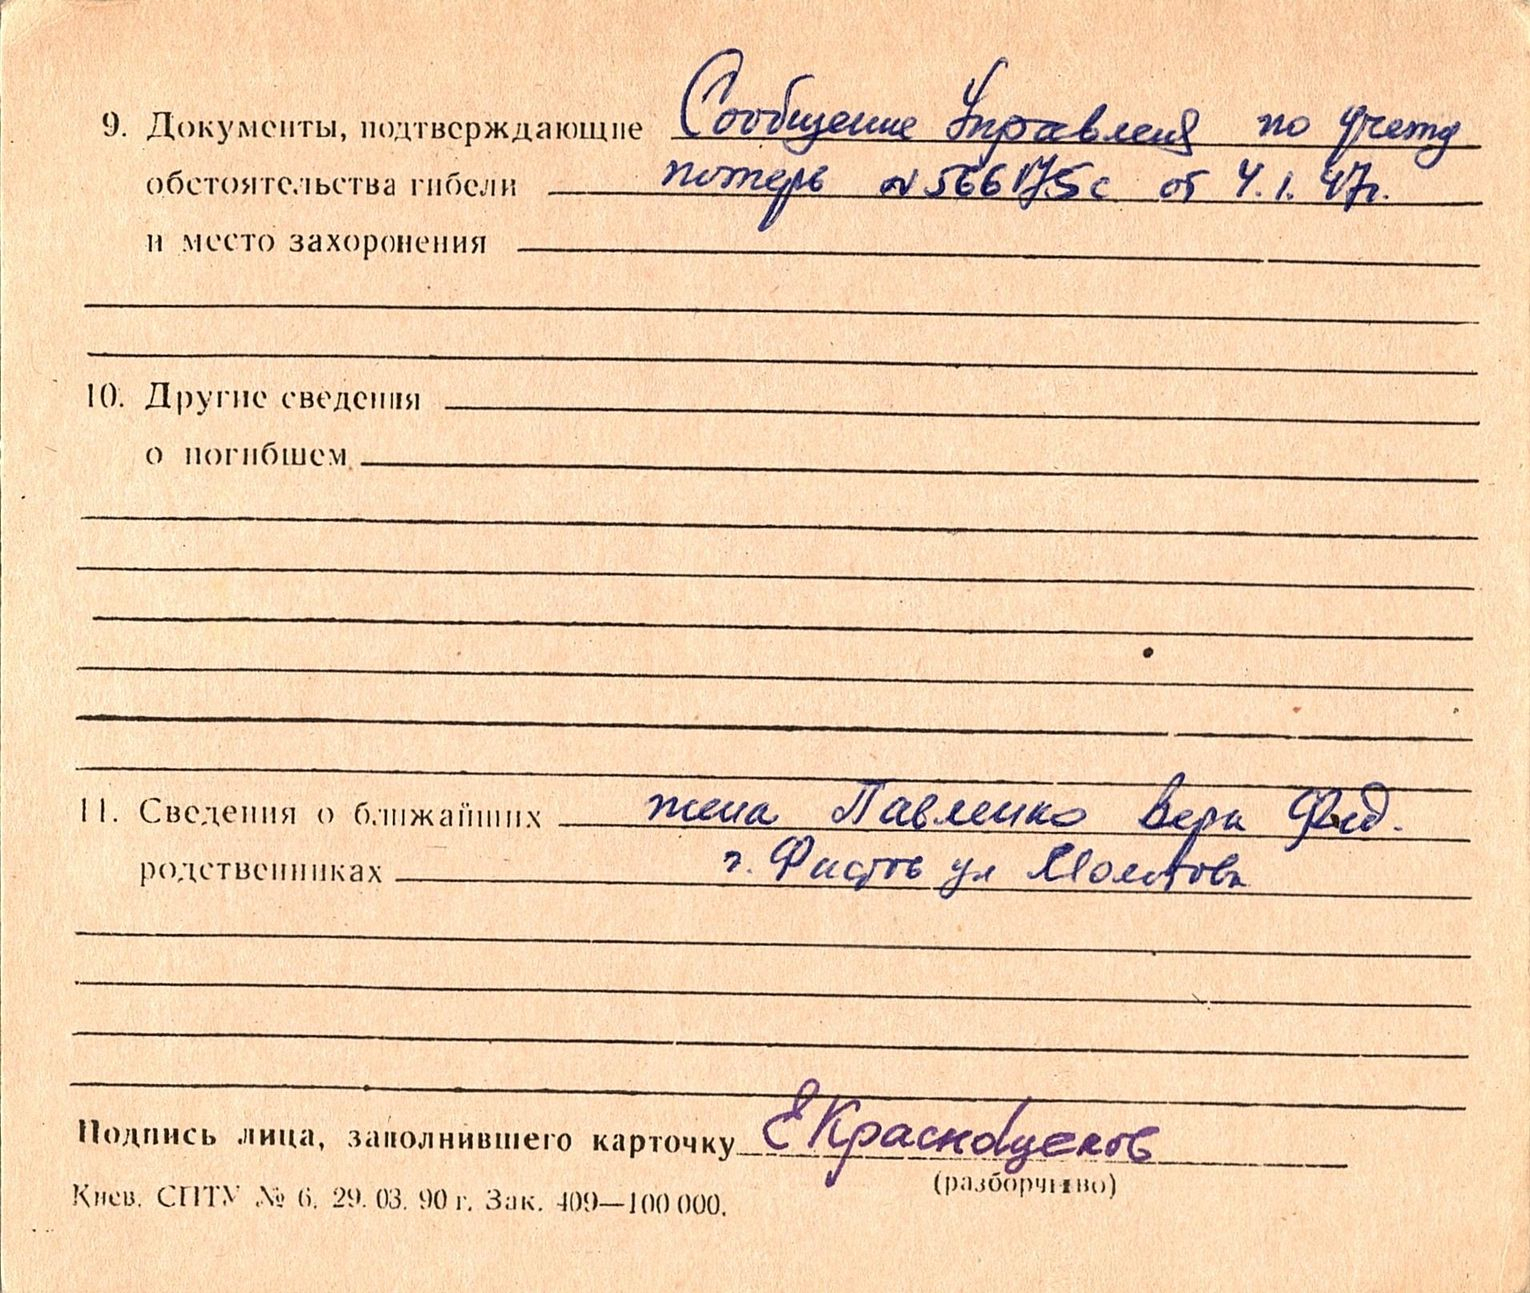 9. Документы, подтверждающие Сообщение Управления по учету
обстоятельства гибели потерь № 566175с от 4.1.47г.
и место захоронения
10. Другие сведения
о погибшем
11. Сведения о ближайших жена Павленко Вера Фед.
родственниках г. Фастов ул Молотова
Подпись лица, заполнившего карточку
(разборчиво)
Киев. СПТУ № 6. 29. 03. 90 г. Зак. 409—100 000.